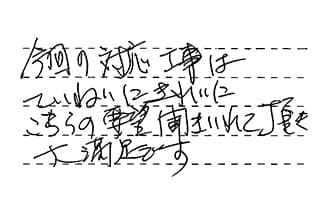 今回の対応工事は
ていねいにきれいに
こちらの要望聞きいれて頂き
大満足です